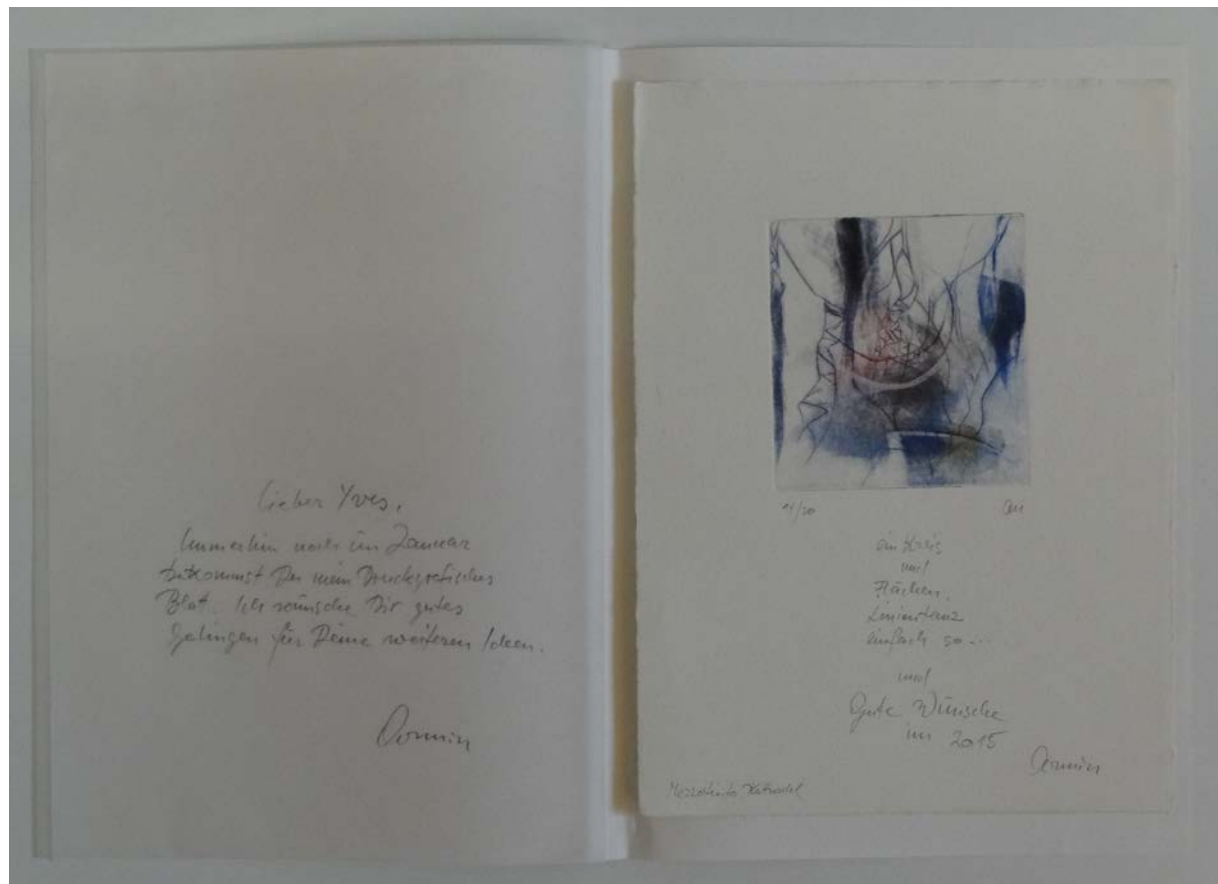 Lieber Yves,
Immerhin noch im Januar
bekommst Du mein Druckgrafisches
Blat. Ich wünsche Dir gutes
Gelingen für Deine weiteren Ideen.
Armin
11/20
ein Kreis
und
Flächen,
Linientanz
einfach so...
und
Gute Wünsche
im 2015
Armin
Mezzotinto